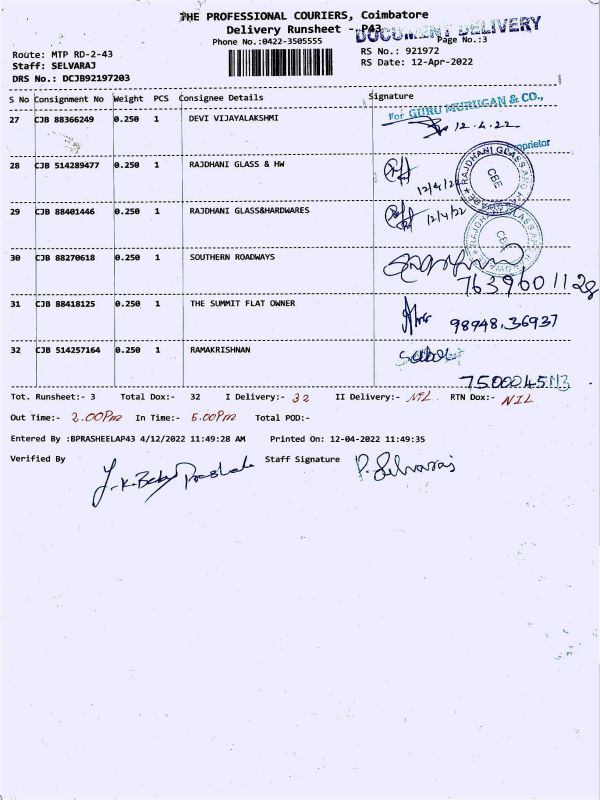 THE PROFESSIONAL COURIERS, Coimbatore
Delivery Runsheet - P43
DOCUMENT DELIVERY
Phone No.:0422-3505555
Page No.:3
Route: MTP RD-2-43
RS No.: 921972
Staff: SELVARAJ
RS Date: 12-Apr-2022
DRS No.: DCJB92197203
S No Consignment No Weight PCS Consignee Details Signature
27 CJB 88366249 0.250 1 DEVI VIJAYALAKSHMI
For GURU MURUGAN & CO.,
12.4.22
Proprietor
28 CJB 514289477 0.250 1 RAJDHANI GLASS & HW
12/4/22
RAJDHANI GLASS AND
CBE
29 CJB 88401446 0.250 1 RAJDHANI GLASS&HARDWARES
12/4/22
CBE
30 CJB 88270618 0.250 1 SOUTHERN ROADWAYS
31 CJB 88418125 0.250 1 THE SUMMIT FLAT OWNER
98948,36937
32 CJB 514257164 0.250 1 RAMAKRISHNAN
Tot. Runsheet:- 3 Total Dox:- 32 I Delivery:- 32 II Delivery:- NIL RTN Dox:- NIL
Out Time:- 2.00Pm In Time:- 5.00PM Total POD:-
Entered By :BPRASHEELAP43 4/12/2022 11:49:28 AM Printed On: 12-04-2022 11:49:35
Verified By Staff Signature P. Selvaraj